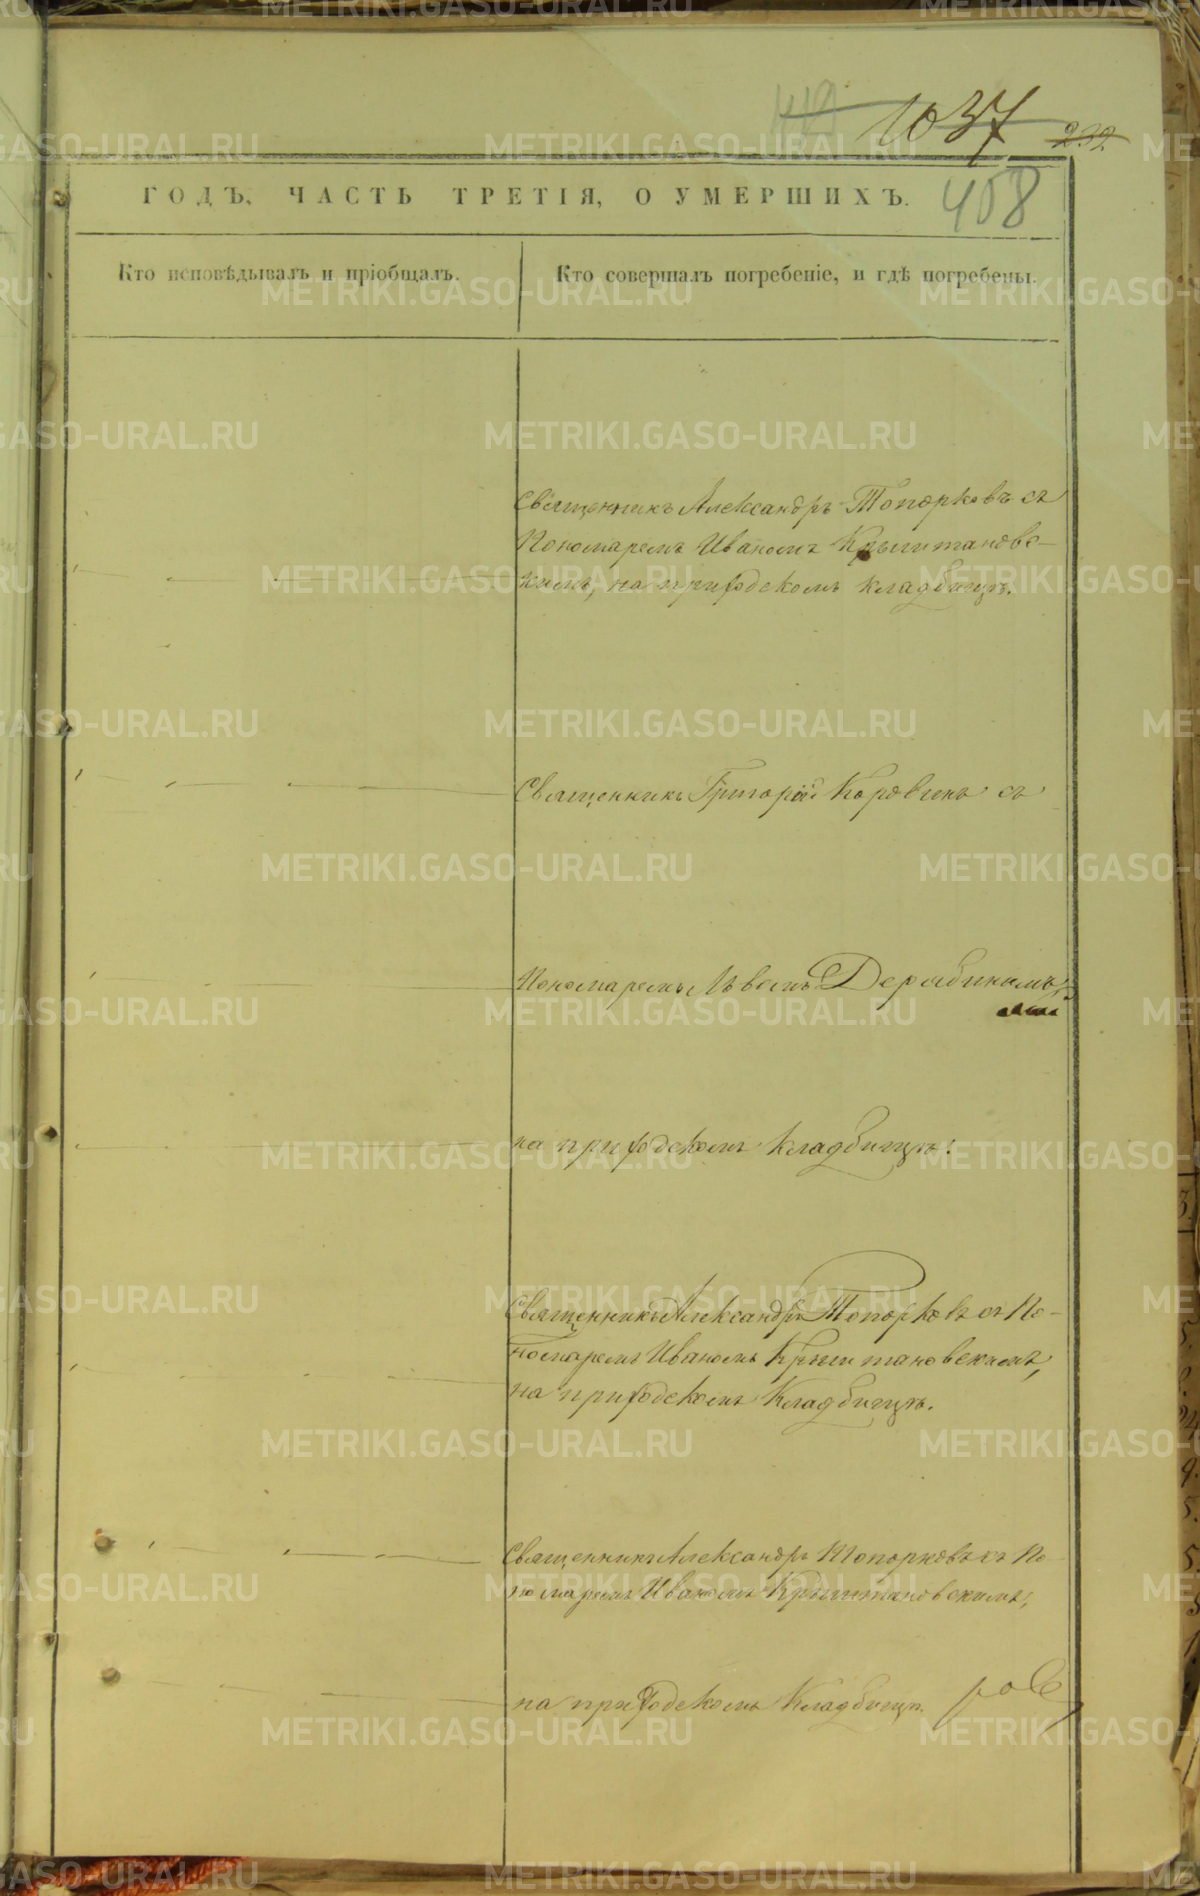 1037
232.
408
ГОДЪ, ЧАСТЬ ТРЕТІЯ, О УМЕРШИХЪ.
Кто исповѣдывалъ и пріобщалъ.
Кто совершалъ погребеніе, и гдѣ погребены.
Священникъ Александръ Топорковъ съ
Пономаремъ Иваномъ Крыштановс-
кимъ, на приходскомъ кладбищѣ.
Священникъ Григорій Коровинъ съ
Пономаремъ Львомъ Дерябинымъ,
на приходскомъ кладбищѣ.
Священникъ Александръ Топорковъ съ По-
номаремъ Иваномъ Крыштановскимъ,
на приходскомъ Кладбищѣ.
Священникъ Александръ Топорковъ съ По
номаремъ Иваномъ Крыштановскимъ,
на приходскомъ Кладбищѣ.
ров
METRIKI.GASO-URAL.RU